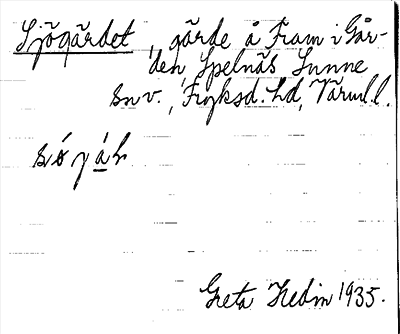 Sjögärdet, gärde å Fram i Går-
den Spelnäs Sunne
snv., Fryksd. hd, Värml. l.
Greta Hedin 1935.